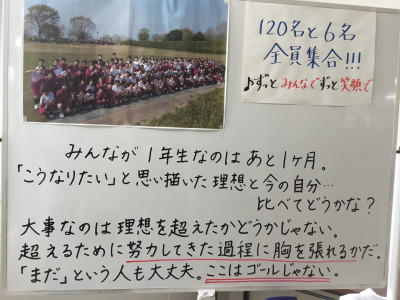 120名と6名
全員集合!!!
♪ずっとみんなでずっと笑顔で
みんなが1年生なのはあと1ヶ月。
「こうなりたい」と思い描いた理想と今の自分…
比べてどうかな？
大事なのは理想を超えたかどうかじゃない。
超えるために努力してきた過程に胸を張れるかだ。
「まだ」という人も大丈夫。ここはゴールじゃない。